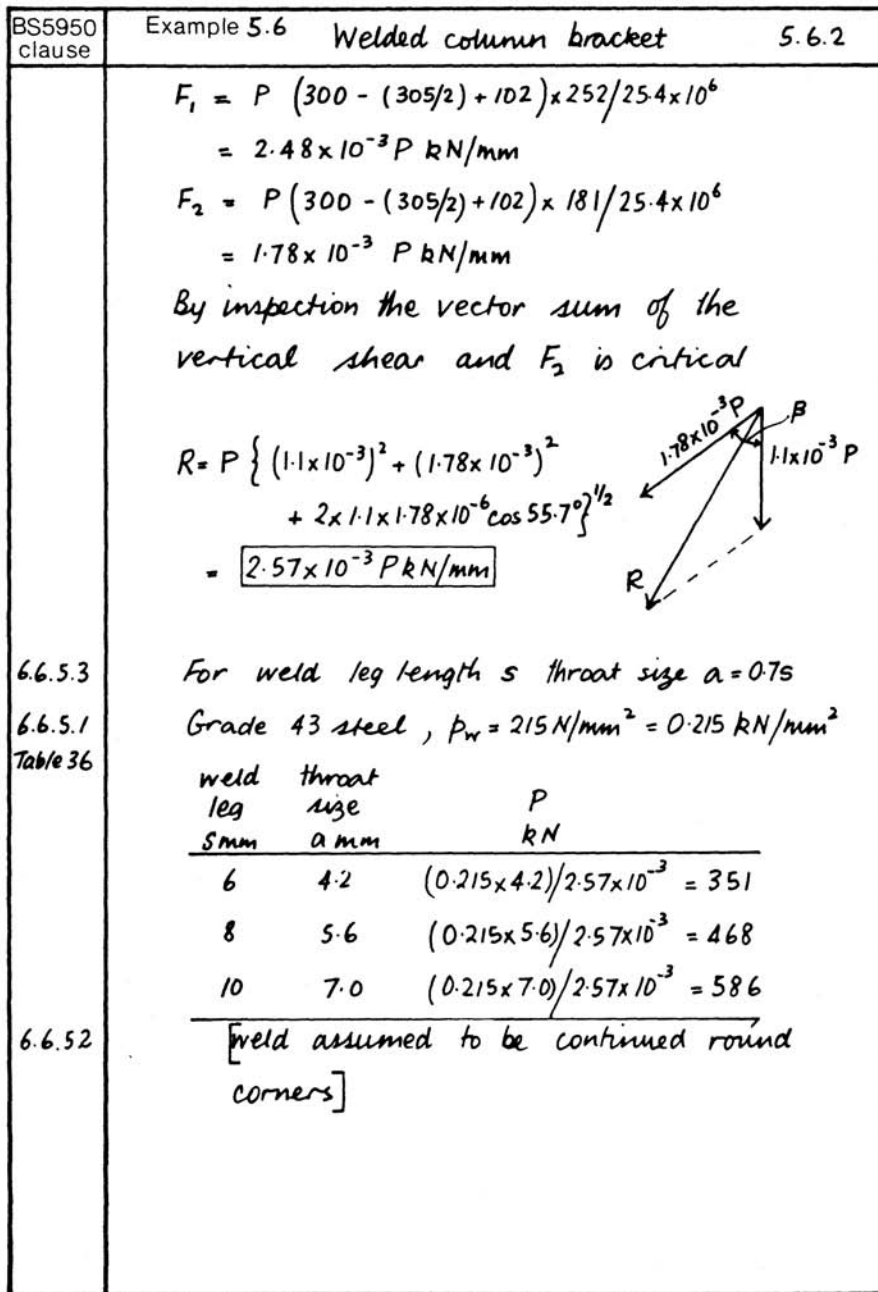 BS5950 clause
Example 5.6 Welded column bracket 5.6.2
F₁ = P (300 - (305/2) + 102) × 252/25.4 × 10⁶
= 2.48 × 10⁻³ P kN/mm
F₂ = P (300 - (305/2) + 102) × 181/25.4 × 10⁶
= 1.78 × 10⁻³ P kN/mm
By inspection the vector sum of the
vertical shear and F₂ is critical
R = P { (1.1 × 10⁻³)² + (1.78 × 10⁻³)²
+ 2 × 1.1 × 1.78 × 10⁻⁶ cos 55.7° }^1/2
= 2.57 × 10⁻³ P kN/mm
1.78 × 10⁻³ P
β
1.1 × 10⁻³ P
R
6.6.5.3 For weld leg length s throat size a = 0.7s
6.6.5.1 Grade 43 steel, p_w = 215 N/mm² = 0.215 kN/mm²
Table 36
weld throat
leg size P
s mm a mm kN
6 4.2 (0.215 × 4.2)/2.57 × 10⁻³ = 351
8 5.6 (0.215 × 5.6)/2.57 × 10⁻³ = 468
10 7.0 (0.215 × 7.0)/2.57 × 10⁻³ = 586
6.6.52 [weld assumed to be continued round
corners]